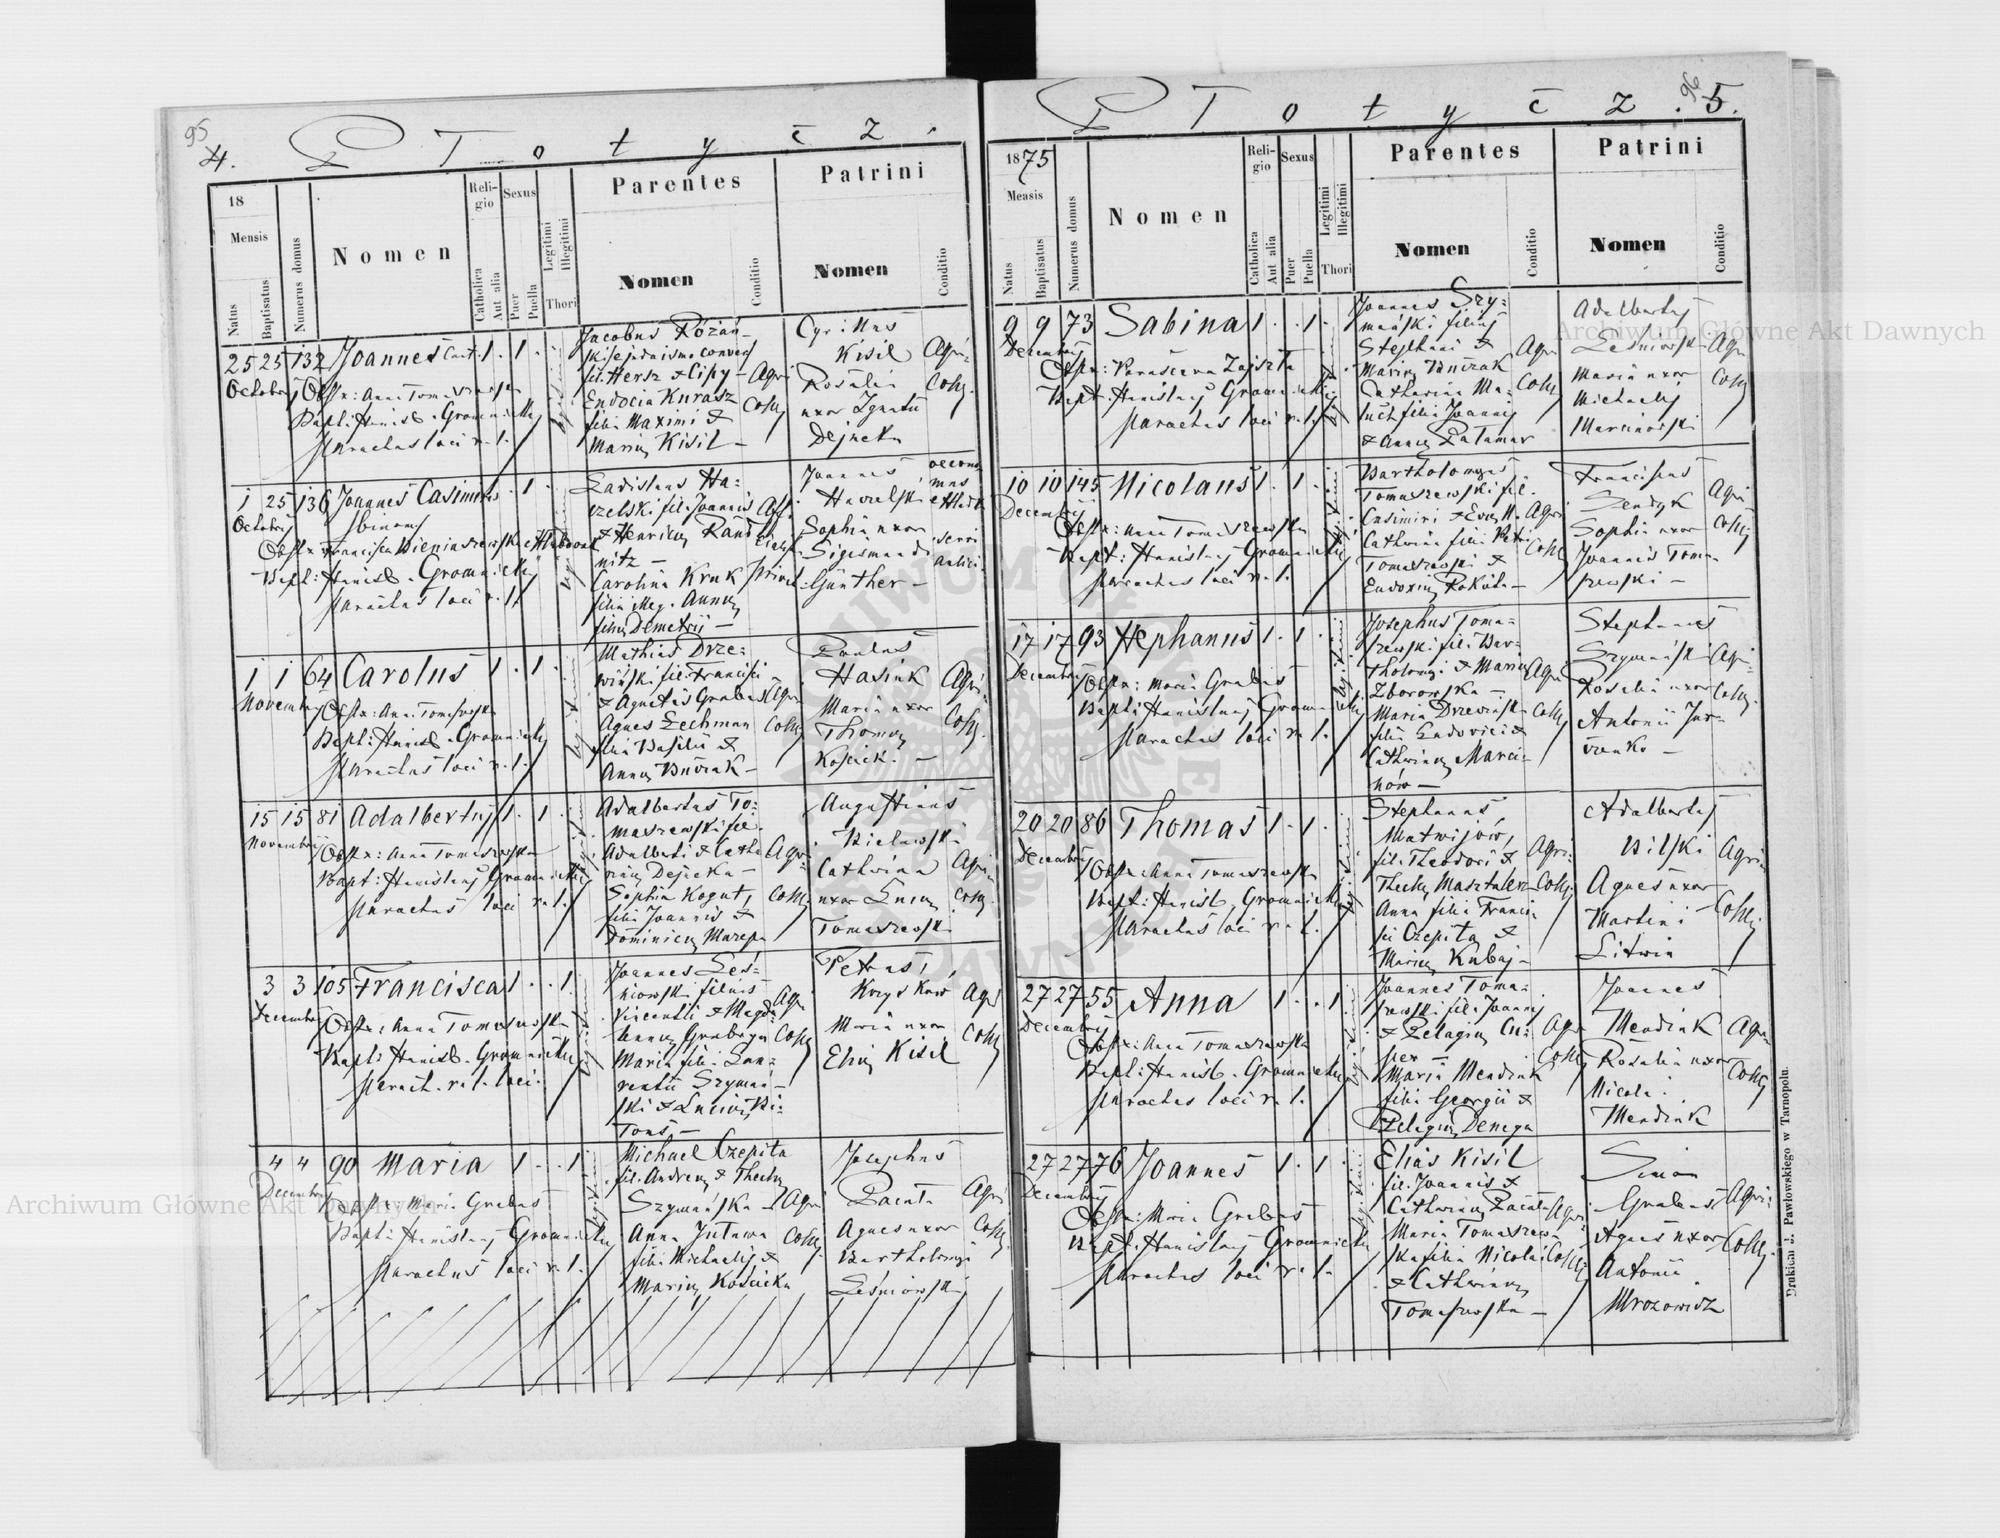 95
4.
Z T o t y c z .
18
Mensis
Natus
Baptisatus
Numerus domus
Nomen
Religio
Catholica
Aut alia
Sexus
Puer
Puella
Legitimi
Illegitimi
Thori
Parentes
Nomen
Conditio
Patrini
Nomen
Conditio
25 25 132 Joannes 1 . 1 .
October
Obstx: Anna Tomaszewska
Bapt: Stanisl. Gromnicki
Parochus loci r. l.
Jacobus Różań-
ski
fil. Hersz & Cipy –
Eudocia Kurasz
filia Maximi &
Mariæ Kisil –
Agri
Colæ
Cyrillus
Kisil
Rosalia
uxor Ignatii
Dejneka
Agri-
Colæ.
1 25 136 Joannes Casimirus . 1 .
October
binomy
Obstx Francisca Wieniaszewska
Bapt: Stanisl. Gromnicki
Parochus loci r. l.
Ladislaus Ha-
czelski fil. Joannis
& Henricæ Kani-
mitz –
Carolina Kruk
filia Annæ
filiæ Demetrii –
Joannes
Sophia uxor
Sigismundi
Günther –
1 1 64 Carolus 1 . 1 .
November
Obstx: Anna Tomaszewska
Bapt: Stanisl. Gromnicki
Parochus loci r. l.
Mathias Drze-
wiński fil. Francisci
& Agnetis Grabas
Agnes Lechman
filia Basilii &
Annæ Buczak –
Agri
Colæ
Paulus
Hasiuk
Maria uxor
Thomæ
Kościck. –
Agri-
Colæ.
15 15 81 Adalbertus 1 . 1 .
November
Obstx: Anna Tomaszewska
Bapt: Stanislaus Gromnicki
Parochus loci r. l.
Adalbertus To-
maszewski fil.
Adalberti & Catha-
rinæ Dejneka –
Sophia Kogut,
filia Joannis &
Dominicæ Mazepa
Agri-
Colæ.
Augustinus
Bielawski
Catharina
uxor Lucæ
Tomaszewski
Agri-
Colæ.
3 3 105 Francisca 1 . . 1 .
December
Obstx: Anna Tomaszewska
Bapt: Stanisl. Gromnicki
Paroch. r. l. loci.
Joannes Leś-
niowski filius
Vincentii & Magda-
lenæ Grabas
Maria filia Lau-
rentii Szymań-
ski & Luciæ Bi-
tous –
Agri
Colæ
Petrus
Krzyśków
Maria uxor
Eliæ Kisil
Agri
Colæ
4 4 90 Maria 1 . . 1
December
Obstx: Maria Grabas
Bapt: Stanislaus Gromnicki
Parochus loci r. l.
Michael Czepita
fil. Andreæ & Theclæ
Szymańska –
Anna Jutawa
filia Michaelis &
Mariæ Kościcka
Agri
Colæ.
Josephus
Pacuta
Agnes uxor
Bartholomæi
Leśniowski
Agri
Colæ.
96
5.
Z T o t y c z .
1875
Measis
Natus
Baptisatus
Numerus domus
Nomen
Religio
Catholica
Aut alia
Sexus
Puer
Puella
Legitimi
Illegitimi
Thori
Parentes
Nomen
Conditio
Patrini
Nomen
Conditio
9 9 73 Sabina 1 . . 1 .
December
Obstx: Parascewa Zajszła
Bapt: Stanislaus Gromnicki
Parochus loci r. l.
Joannes Szy-
mański filius
Stephani &
Mariæ Buczak
Catharina Ma-
filia Joannis
& Annæ Pałamar
Agri
Colæ
Adalbertus
Leśniowski
Maria uxor
Michaelis
Marcinowski
Agri
Colæ
10 10 145 Nicolaus 1 . 1 .
December
Obstx: Anna Tomaszewska
Bapt: Stanislaus Gromnicki
Parochus loci r. l.
Bartholomæus
Tomaszewski fil.
Casimiri &
Catharina filia Petri
Tomaszewski &
Eudoxiæ Rokita –
Agri
Colæ
Franciscus
Sendyk
Sophia uxor
Joannis Toma-
szewski –
Agri
Colæ
17 17 93 Stephanus 1 . 1 .
December
Obstx: Maria Grabas
Bapt: Stanislaus Gromnicki
Parochus loci r. l.
Josephus Toma-
szewski fil. Bar-
tholomæi & Mariæ
Zborowska –
Maria Drzewińska
filia Ludovici &
Catharinæ Marci-
nów –
Agri
Colæ
Stephanus
Szymański
Rosalia uxor
Antonii Jur-
Agri-
Colæ.
20 20 86 Thomas 1 . 1 .
December
Obstx: Anna Tomaszewska
Bapt: Stanisl. Gromnicki
Parochus loci r. l.
Stephanus
Matwijów,
fil. Theodori &
Theclæ Masztalerz
Anna filia Franci-
sci Czepita &
Mariæ Kubaj –
Agri-
Colæ.
Adalbertus
Bilski
Agnes uxor
Martini
Litwin
Agri-
Colæ.
27 27 55 Anna 1 . . 1
December
Obstx: Anna Tomaszewska
Bapt: Stanisl. Gromnicki
Parochus loci r. l.
Joannes Toma-
szewski fil. Joannis
& Pelagiæ Cu-
per –
Maria Mendiuk
filia Georgii &
Pelagiæ Denega
Agri-
Colæ
Joannes
Mendiuk
Rosalia uxor
Nicolai
Mendiuk
Agri-
Colæ.
27 27 76 Joannes 1 . 1 .
December
Obstx: Maria Grabas
Bapt: Stanislaus Gromnicki
Parochus loci r. l.
Elias Kisil
fil. Joannis &
Catharinæ Pacuta
Maria Tomaszew-
ska filia Nicolai
& Catharinæ
Tomaszewska –
Agri-
Colæ
Simon
Grabas
Agnes uxor
Antonii
Mrozowicz
Agri-
Colæ.
Drukiem J. Pawłowskiego w Tarnopolu.
Archiwum Główne Akt Dawnych
Archiwum Główne Akt Dawnych
ARCHIWUM GŁÓWNE AKT DAWNYCH